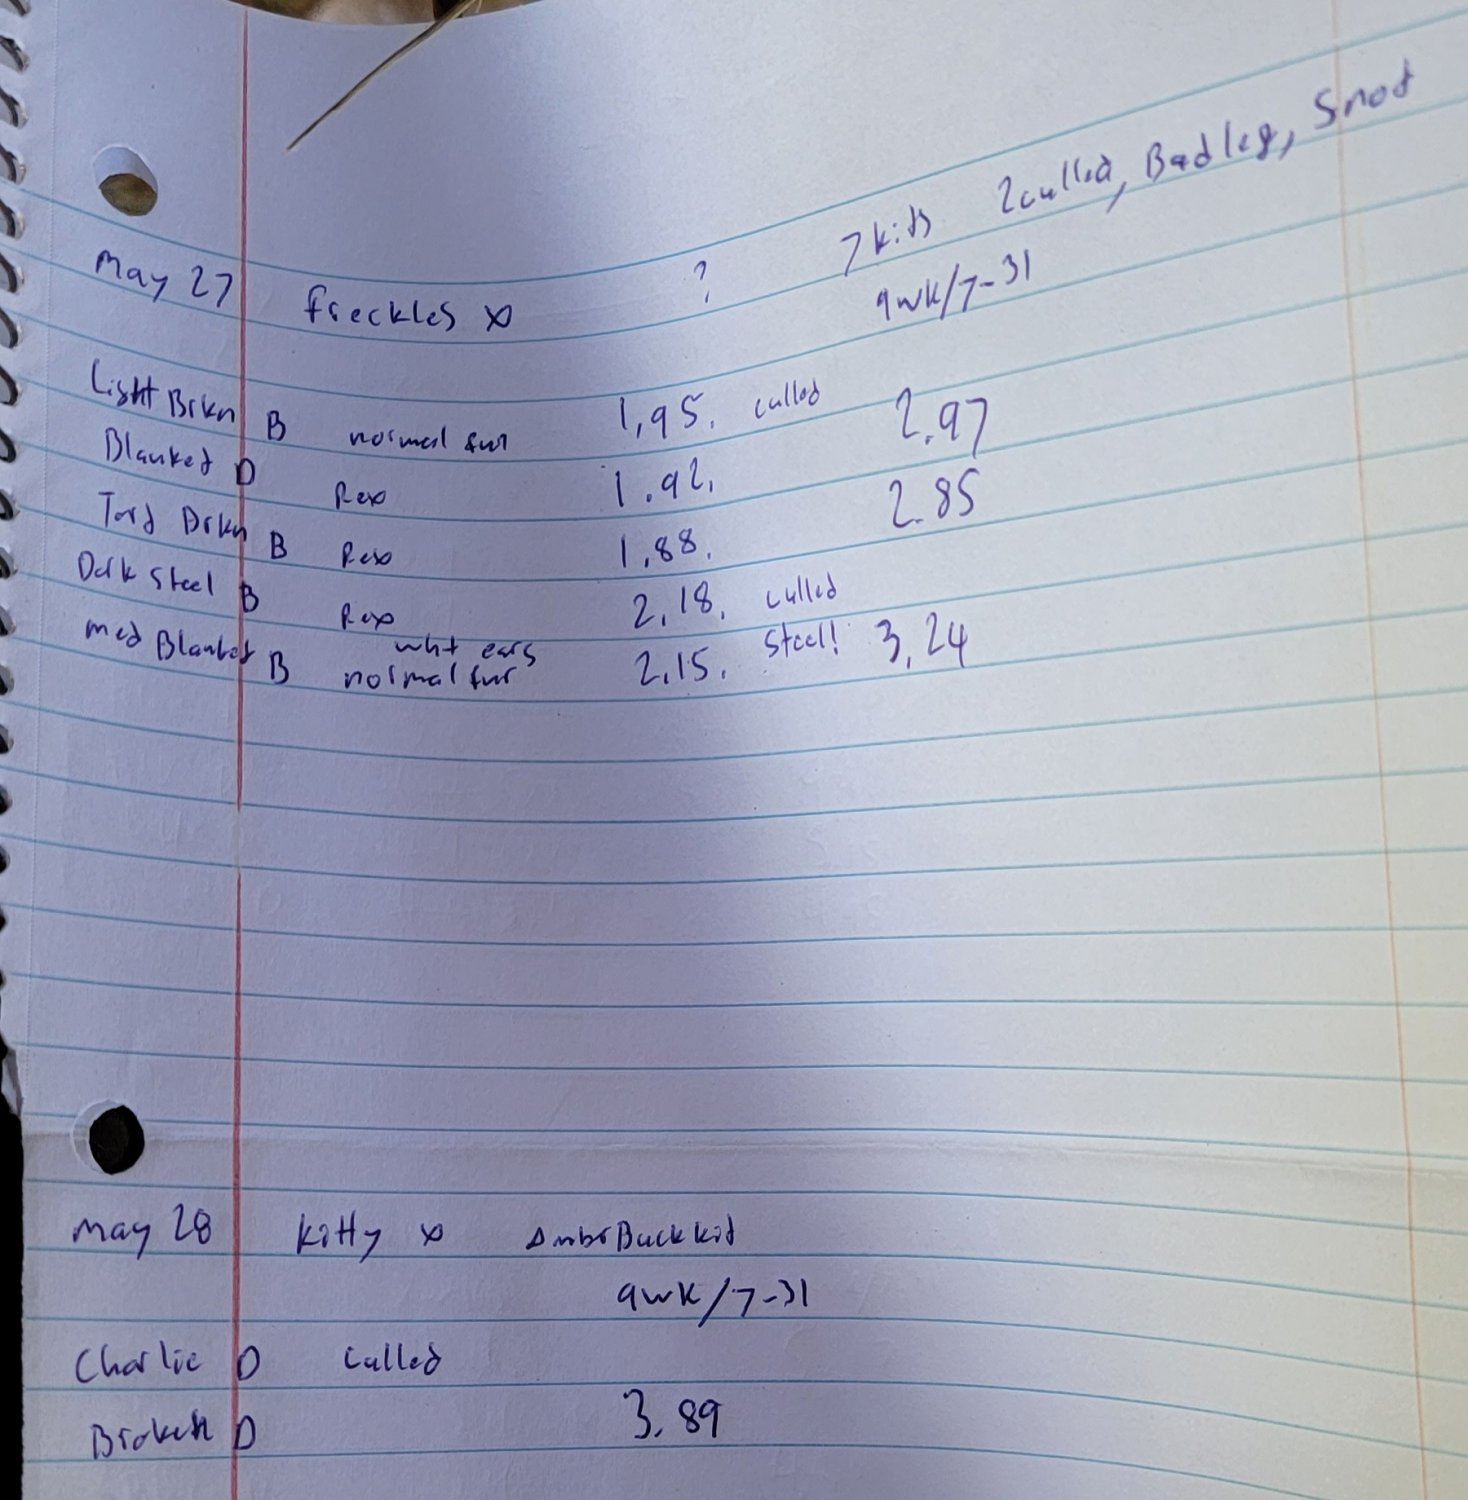 7 kids 2culled, Badleg, Snot
May 27 freckles x ? 9wk/7-31
Light Brkn B normal fur 1,95. culled
Blanket D Rex 1.92. 2.97
Brkn B Rex 1,88. 2.85
Dark Steel B Rex 2,18. culled
med Blanket B wht ears normal fur 2,15. Steel! 3,24
May 28 Kitty x AmbrBuckkid
9wk/7-31
Charlie D culled
Broken D 3.89